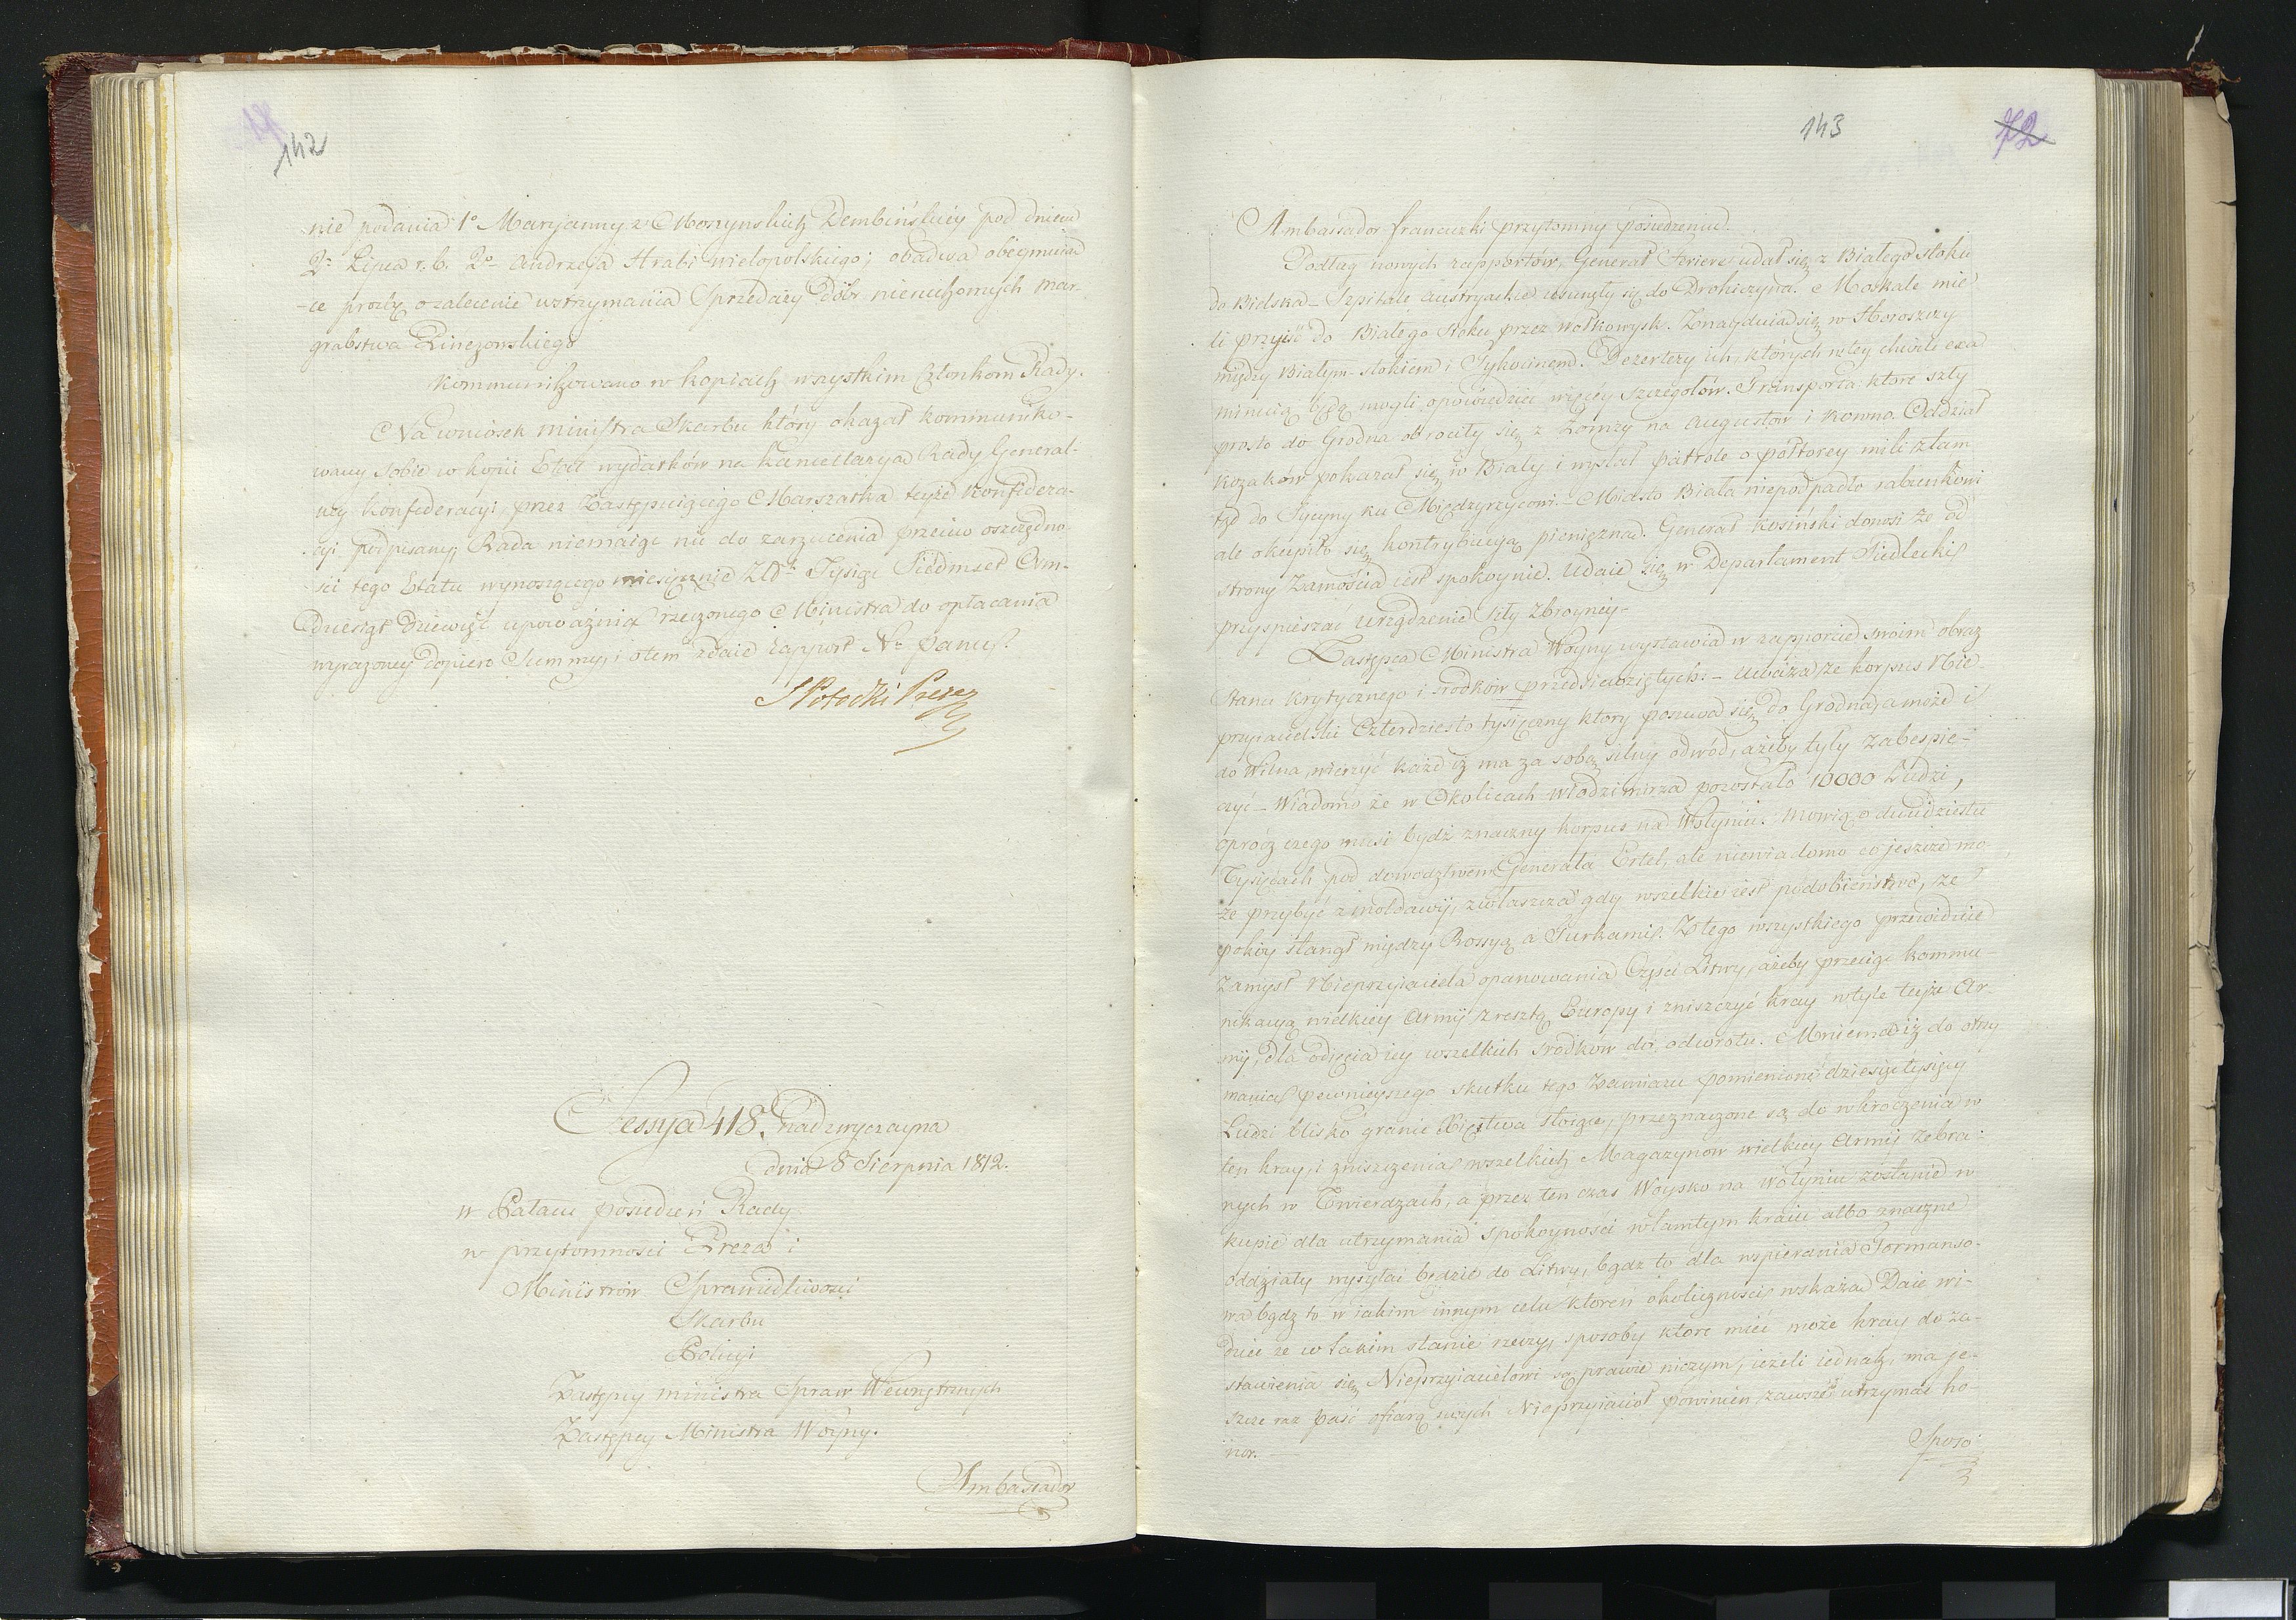 142
nie podania 1º Maryanny z Moszynskich Dembińskiey pod dniem
2º Lipca r. b. 2º Andrzeja Hrabi Wielopolskiego; obadwa obeymuią
-ce prozby o zalecenie wstrzymania Sprzedaży Dóbr nieruchomych Mar-
grabstwa Pinczowskiego
Kommunikowano w kopiach wszystkim Członkom Rady.
Na wniosek Ministra Skarbu który okazał kommuniko-
wany sobie w kopii Etat wydatków na Kancellaryą Rady General-
ney Konfederacyi przez Zastępuiącego Marszałka teyże Konfedera-
cyi podpisany; Rada niemaiąc nic do zarzucenia przeciw oszczędno-
ści tego Etatu wynoszącego miesięcznie Złt. Tysiąc Siedmset Ośm-
dziesiąt Dziewięć upoważnia rzeczonego Ministra do opłacania
wyrażoney dopiero Summy, i o tem zdaie rapport N. Panu.
S Potocki Prezes
Sessya 418. nadzwyczayna
dnia 8 Sierpnia 1812.
w Pałacu posiedzeń Rady
w przytomności Preza i
Ministrów Sprawiedliwości
Skarbu
Policyi
Zastępcy Ministra Spraw Wewnętrznych
Zastępcy Ministra Woyny.
Ambassador
143
72
Ambassador francuzki przytomny posiedzeniu.
Podług nowych rapportów, Generał Feriere udał się z Białego Stoku
do Bielska – Szpitale austryackie usunęły się do Drohiczyna. Moskale mie
li przyiść do Białego Stoku przez Wołkowysk. Znayduią się w Horoszczy
między Białym-stokiem i Tykocinem. Dezertery ich, których w tey chwili exa
minuią będą mogli opowiedzieć więcey szczegółów. Transporta które szły
prosto do Grodna obrociły się z Łomży na Augustów i Kowno. Oddział
kozaków pokazał się w Biały i wysłał patrole o półtorey mili ztam
tąd do Sycyny ku Międzyrzycowi. – Miasto Biała niepodpadło rabunkowi
ale okupiło się kontrybucyą pienięzną. Generał Kosiński donosi że od
strony Zamościa iest spokoynie. Udaie się w Departament Siedlecki
przyspieszać urządzenie siły zbroyney –
Zastępca Ministra Woyny wystawia w rapporcie swoim obraz
stanu krytycznego i środków przedsięwziętych: – Uważa, że korpus Nie
przyiacielski Czterdziesto tysięczny który posuwa się do Grodna, a może i
do Wilna, wierzyć każe iż ma za sobą silny odwód, ażeby tyły zabespie-
czyć – Wiadomo że w Okolicach Włodzimirza pozostało 10000 Ludzi,
oprócz czego musi bydź znaczny korpus na Wołyniu. Mowią o dwudziestu
Tysiącach pod dowodztwem Generała Ertel, ale niewiadomo co jeszcze mo-
że przybyć z Mołdawij, zwłaszcza gdy wszelkie iest podobieństwo, że
pokóy stanął między Rossyą a Turkami. Z tego wszystkiego przewiduie
Zamysł Nieprzyiaciela opanowania Części Litwy, ażeby przeciąć kommu-
nikacyą wielkiey Armij z resztą Europy i zniszczyć kray w tyle teyże Ar-
mij, dla odięcia iey wszelkich środków do odwrotu. Mniema iż do otrzy
mania pewnieyszego skutku tego Zamiaru pomienione dziesięć tysięcy
Ludzi blisko granic Xięstwa stoiące, przeznaczone są do wkroczenia w
ten kray, i zniszczenia wszelkich Magazynow wielkiey Armij zebra-
nych w Twierdzach, a przez ten czas Woysko na Wołyniu zostanie w
kupie dla utrzymania spokoyności w tamtym kraiu albo znaczne
oddziały wysyłać będzie do Litwy, bądz to dla wspierania Tormanso-
wa bądz to w iakim innym celu któren okoliczności wskażą. Daie wi-
dzieć że w takim stanie rzeczy, sposoby ktore mieć może kray do za-
stawienia się Nieprzyiacielowi są prawie niczym, ieżeli iednak, ma je-
szcze raz paść ofiarą swych Nieprzyiacioł powinien zawsze utrzymać ho-
nor. –
Sposo